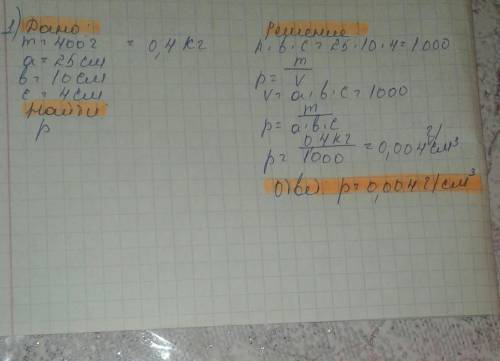 1) Дано:
m = 400г = 0,4 кг
a = 25 см
в = 10 см
c = 4 см
Найти
p
Решение:
a · в · c = 25 · 10 · 4 = 1000
p = m/V
V = a · в · c = 1000
p = m/a·в·c
p = 0,4 кг/1000 = 0,004 г/см³
p = 0,004 г/см³